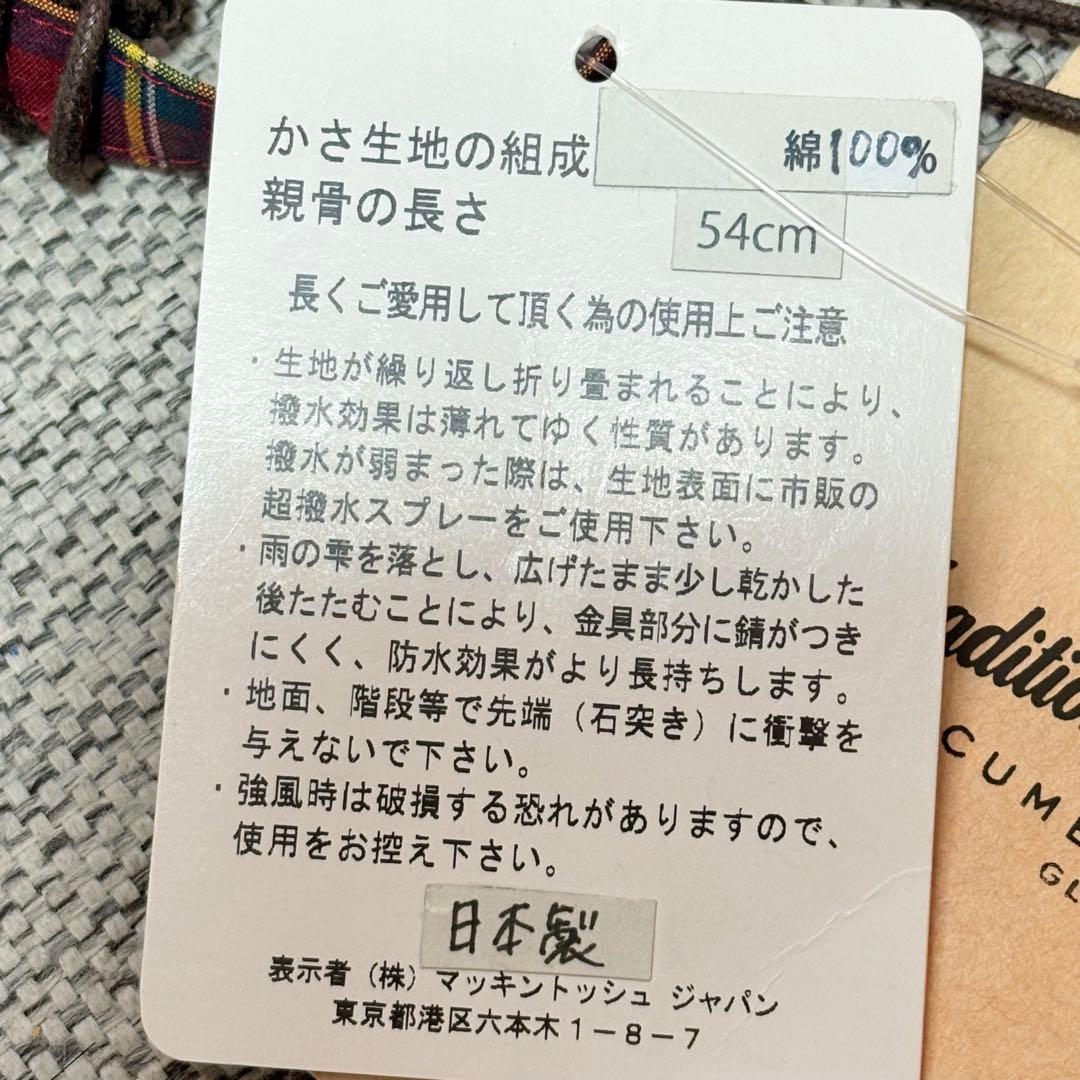 かさ生地の組成 綿100%
親骨の長さ 54cm
長くご愛用して頂く為の使用上ご注意
・生地が繰り返し折り畳まれることにより、
撥水効果は薄れてゆく性質があります。
撥水が弱まった際は、生地表面に市販の
超撥水スプレーをご使用下さい。
・雨の雫を落とし、広げたまま少し乾かした
後たたむことにより、金具部分に錆がつき
にくく、防水効果がより長持ちします。
・地面、階段等で先端（石突き）に衝撃を
与えないで下さい。
・強風時は破損する恐れがありますので、
使用をお控え下さい。
日本製
表示者（株）マッキントッシュ ジャパン
東京都港区六本木１－８－７